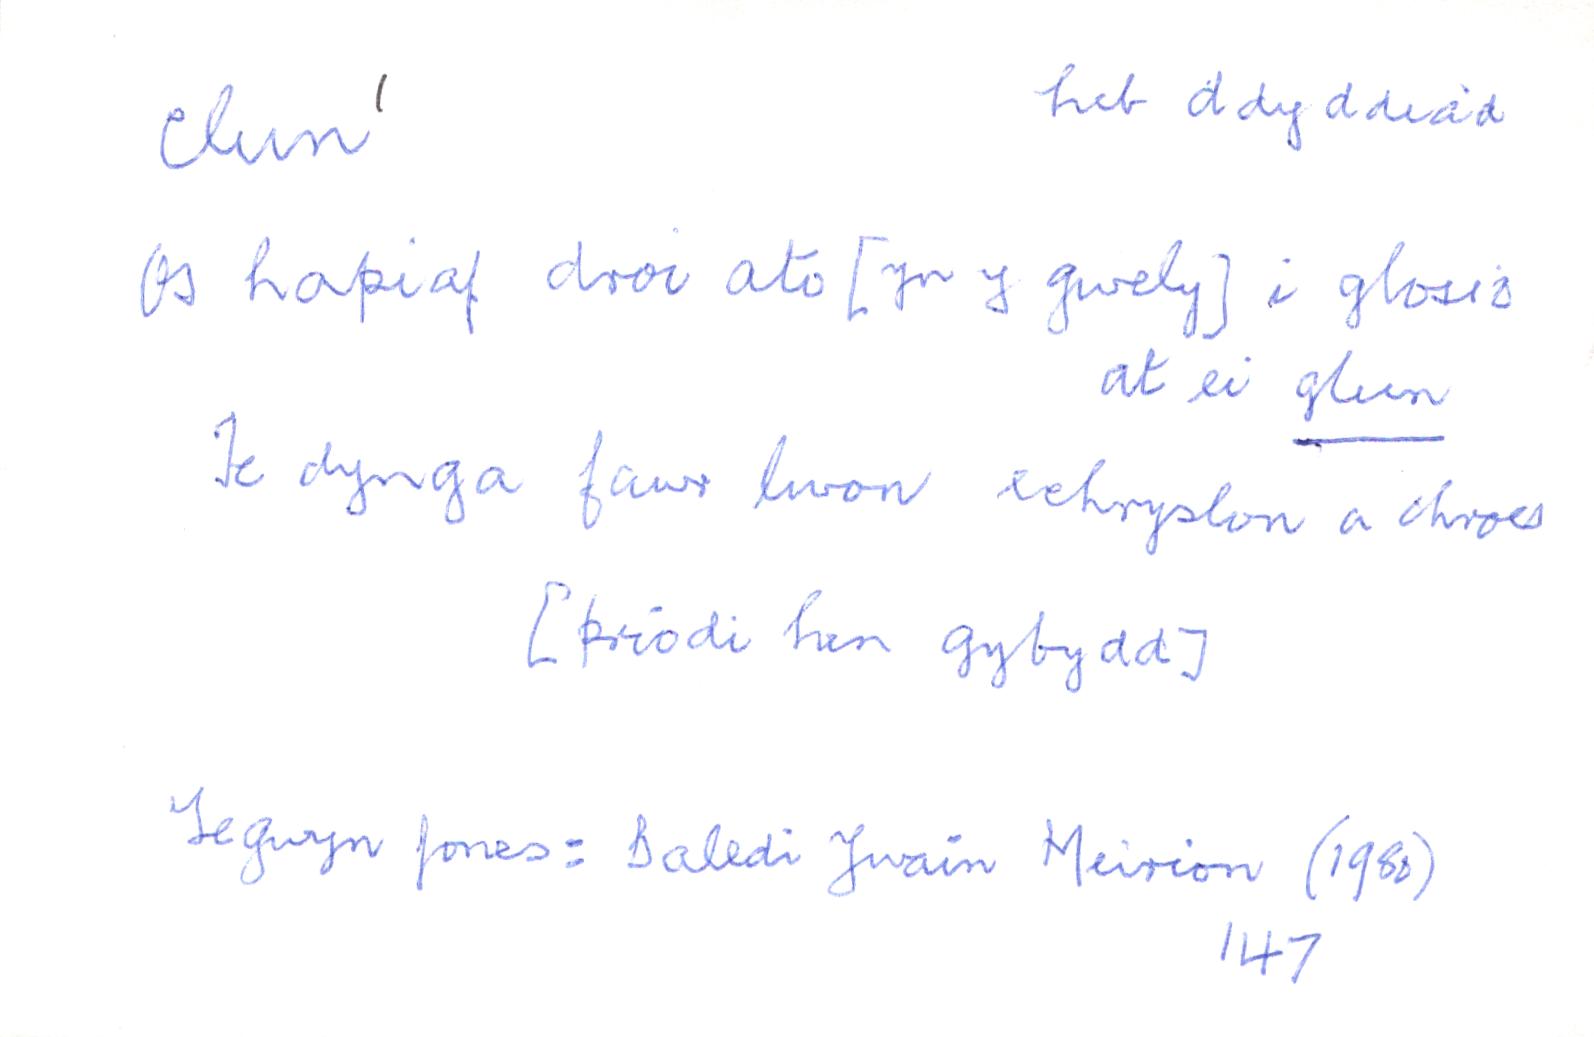 clun¹ heb ddyddiad
Os hapiaf droi ato [yn y gwely] i glosio
at ei glun
Fe dynga fawr lwon echryslon a chroes
[priodi hen gybydd]
Tegwyn Jones: Baledi Ywain Meirion (1980)
147